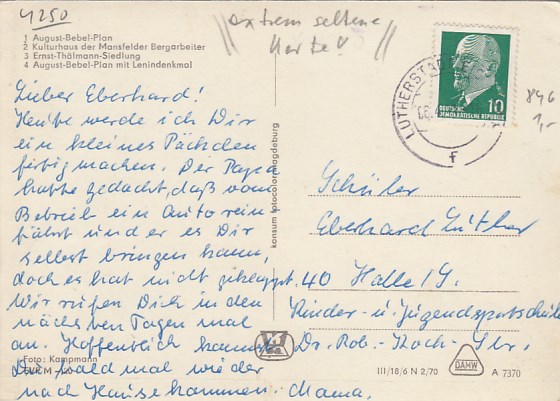 4250
extrem seltene
Karte!
1 August-Bebel-Plan
2 Kulturhaus der Mansfelder Bergarbeiter
3 Ernst-Thälmann-Siedlung
4 August-Bebel-Plan mit Lenindenkmal
10
DEUTSCHE
DEMOKRATISCHE REPUBLIK
LUTHERSTADT
f
846
1,-
Lieber Eberhard!
Heute werde ich Dir
ein kleines Päckchen
fertig machen. Der Papa
hatte gedacht, daß vom
Betrieb ein Auto rein
fährt und er es Dir
selbst bringen kann,
doch es hat nicht geklappt.
Wir rufen Dich in den
nächsten Tagen mal
an. Hoffentlich kannst
Du bald mal wieder
nach Hause kommen. Mama.
konsum fotocolor magdeburg
Schüler
Eberhard Luther
40 Halle/S.
Kinder- u. Jugendsportschule
Dr.-Rob.-Koch-Str.
Foto: Kampmann
III/18/6 N 2/70
DAMW
A 7370